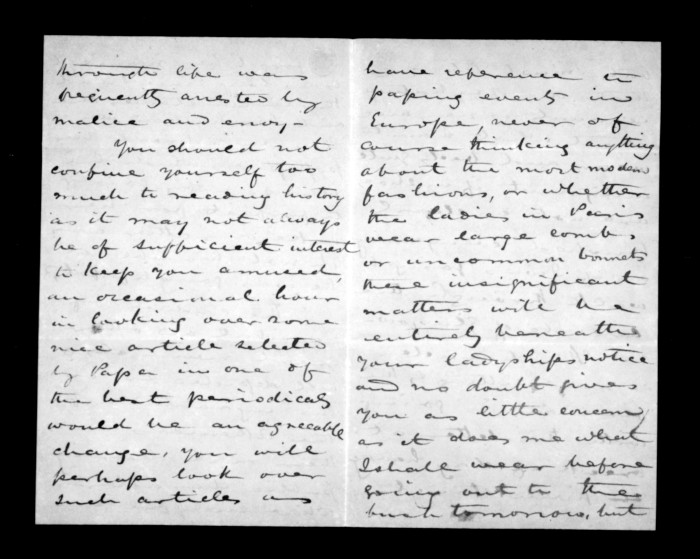 through life was
frequently arrested by
malice and envy,-
You should not
confine yourself too
much to reading history
as it may not always
be of sufficient interest
to keep you amused,
an occasional hour
in looking over some
nice article selected
by Papa in one of
the best periodicals
would be an agreeable
change, you will
perhaps look over
such articles as
have reference to
passing events in
Europe, never of
course thinking anything
about the most modern
fashions, or whether
the ladies in Paris
wear large combs
or uncommon bonnets
these insignificant
matters will be
entirely beneath
your ladyships notice
and no doubt gives
you as little concern
as it does me what
I shall wear before
going out to the
bush tomorrow, but